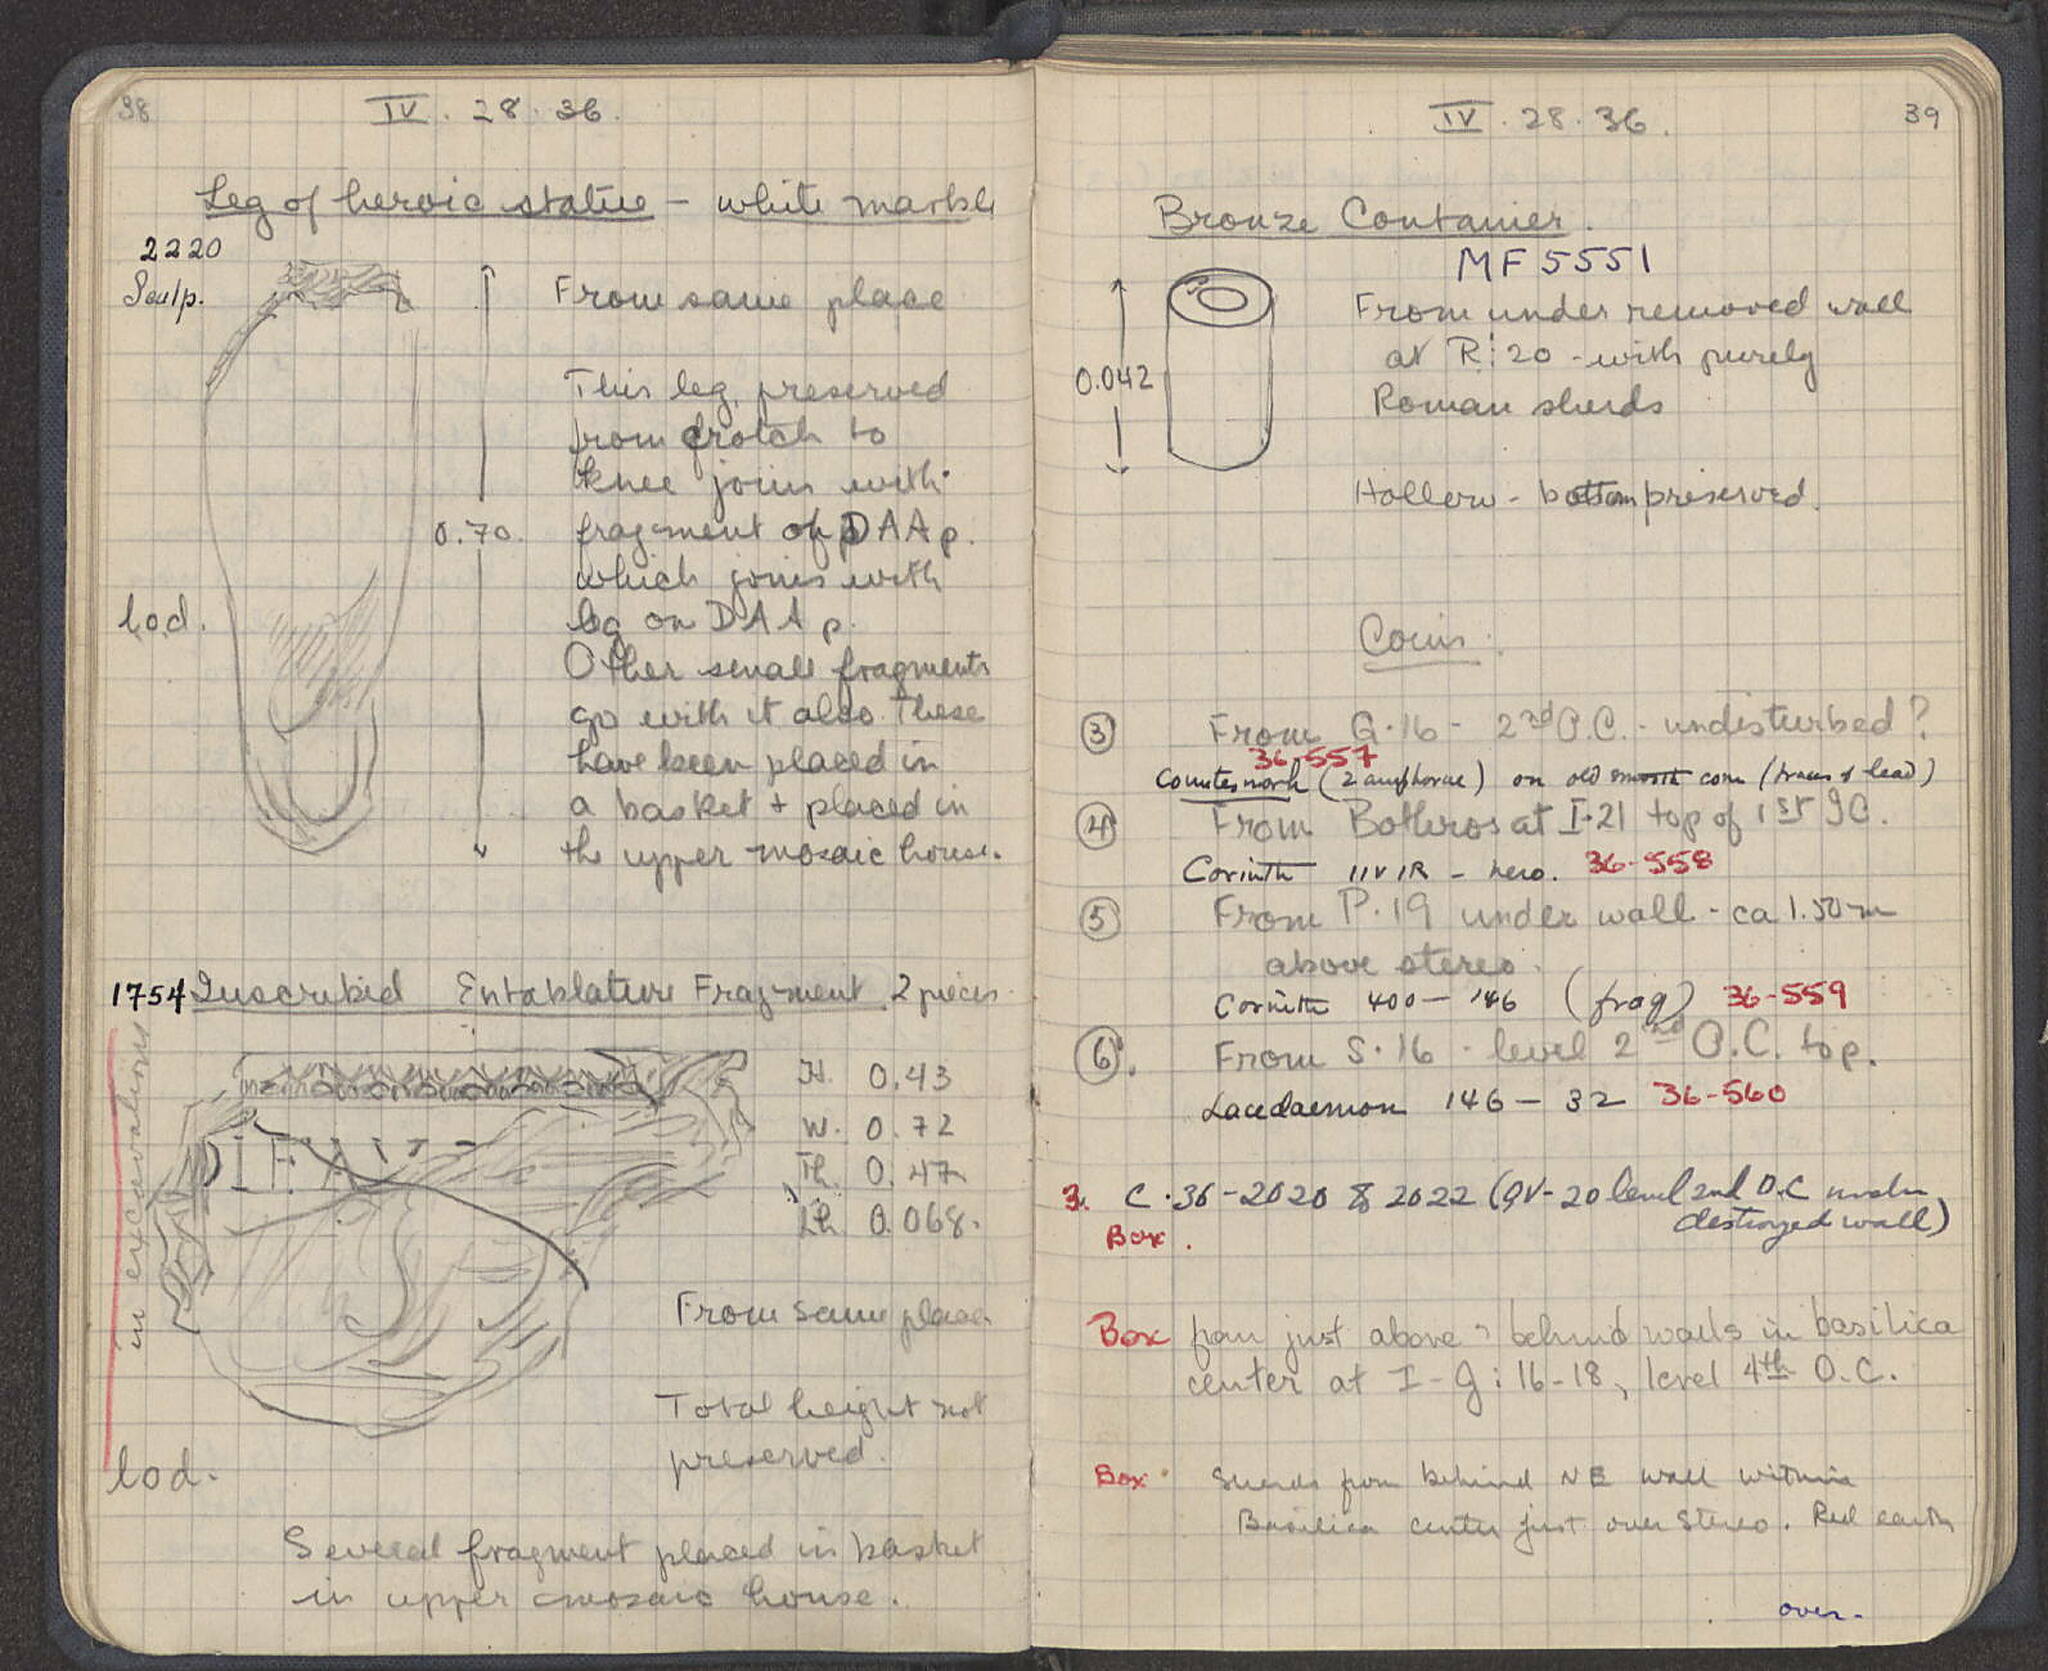 38
IV . 28 . 36.
Leg of heroic statue - white marble
2220
Sculp.
From same place
This leg, preserved
from crotch to
knee joins with
0.70.
fragment on DAA p.
which joins with
leg on DAA p.
lod.
Other small fragments
go with it also. These
have been placed in
a basket + placed in
the upper mosaic house.
1754 Inscribed Entablature Fragment 2 pieces
in excavations
DIFA
H. 0.43
W. 0.72
Th. 0.47
Lh. 0.068.
From same place
Total height not
preserved.
lod.
Several fragment placed in basket
in upper mosaic house.
IV . 28 . 36.
39
Bronze Container.
MF 5551
From under removed wall
at R:20 - with purely
0.042
Roman sherds
Hollow - bottom preserved.
Coins:
③ From G.16 - 2nd O.C. - undisturbed?
36-557
Countermark (2 amphorae) on old smooth coin (traces of lead)
④ From Bothros at I.21 top of 1st
Corinth IIVIR - Nero. 36-558
⑤ From P.19 under wall - ca 1.50m
above stereo.
Corinth 400 - 146 (frag) 36-559
⑥. From S.16 - level 2nd O.C. top.
Lacedaemon 146 - 32 36-560
3. C.36-2020 & 2022 (QV-20 level 2nd O.C under
destroyed wall)
Box.
Box from just above & behind walls in basilica
center at I-J: 16-18, level 4th O.C.
Box Sherds from behind NE wall within
Basilica center just over Stereo. Red earth
over-